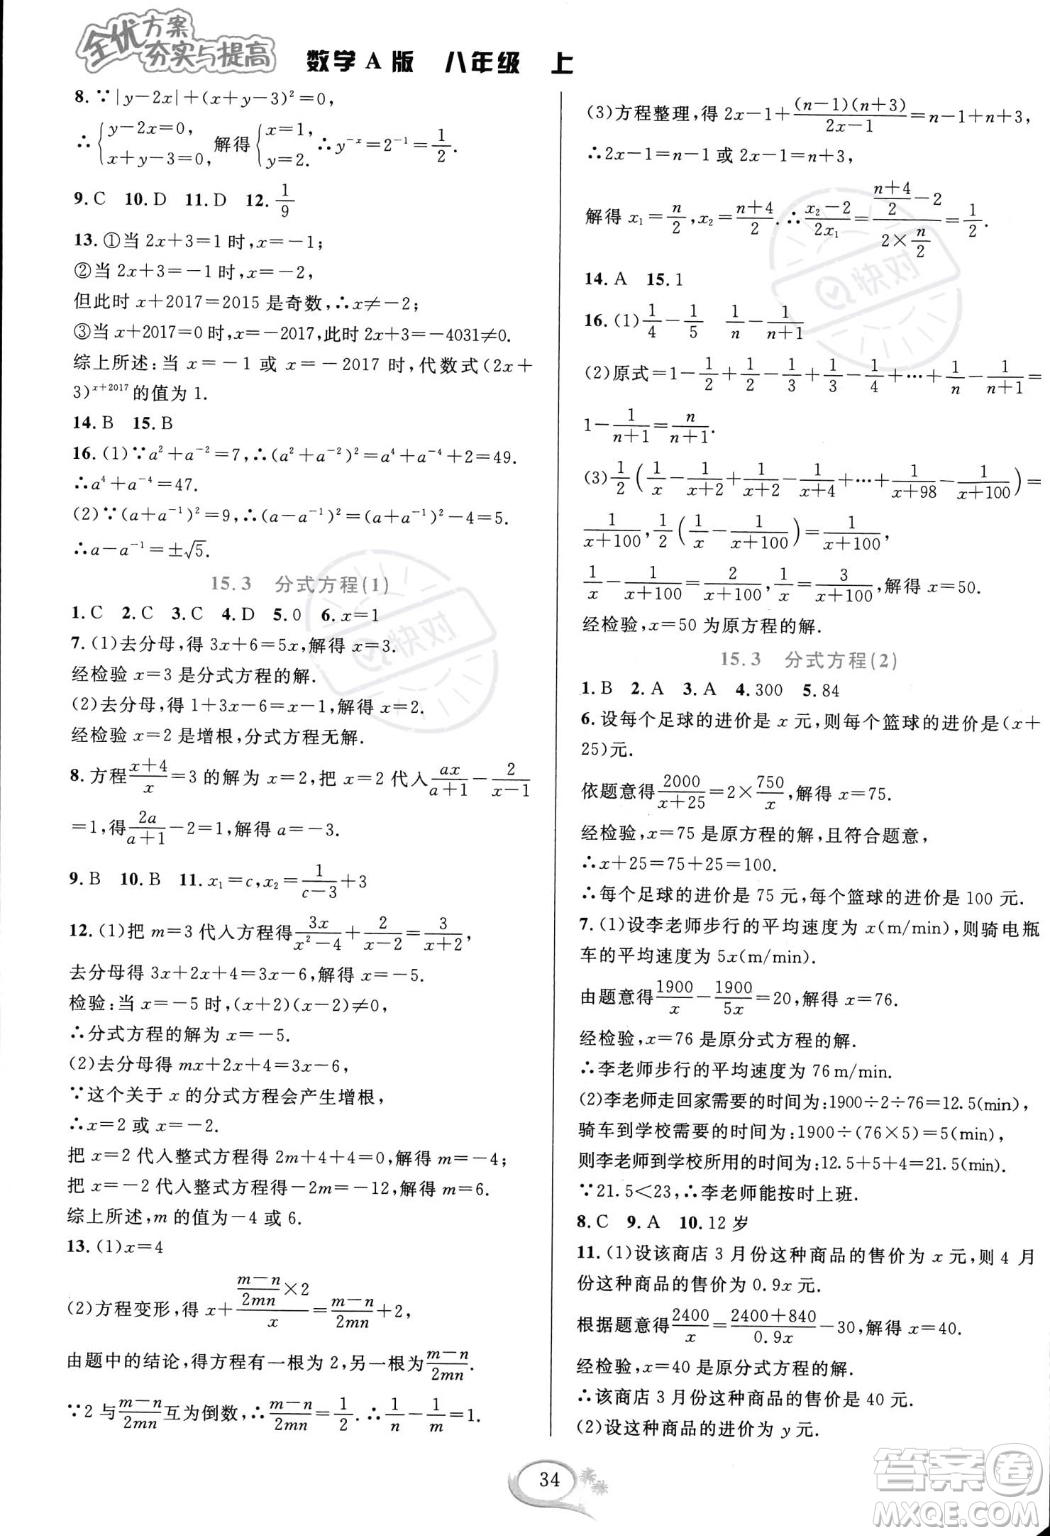 全优方案
夯实与提高
数学A版 八年级 上
8.∵|y－2x|＋(x＋y－3)²＝0,
∴{y－2x＝0, x＋y－3＝0, 解得{x＝1, y＝2. ∴y⁻ˣ＝2⁻¹＝1/2.
9.C 10.D 11.D 12.1/9
13.①当2x＋3＝1时,x＝－1;
②当2x＋3＝－1时,x＝－2,
但此时x＋2017＝2015是奇数,∴x≠－2;
③当x＋2017＝0时,x＝－2017,此时2x＋3＝－4031≠0.
综上所述:当x＝－1或x＝－2017时,代数式(2x＋
3)^(x＋2017)的值为1.
14.B 15.B
16.(1)∵a²＋a⁻²＝7,∴(a²＋a⁻²)²＝a⁴＋a⁻⁴＋2＝49.
∴a⁴＋a⁻⁴＝47.
(2)∵(a＋a⁻¹)²＝9,∴(a－a⁻¹)²＝(a＋a⁻¹)²－4＝5.
∴a－a⁻¹＝±√5.
15.3 分式方程(1)
1.C 2.C 3.C 4.D 5.0 6.x＝1
7.(1)去分母,得3x＋6＝5x,解得x＝3.
经检验x＝3是分式方程的解.
(2)去分母,得9x－3x－6＝0,解得x＝2.
经检验x＝2是增根,分式方程无解.
8.方程(x＋4)/x＝3的解为x＝2,把x＝2代入ax/(a＋1)－2/(x－1)
＝1,得2a/(a＋1)－2＝1,解得a＝－3.
9.B 10.B 11.x₁＝c,x₂＝1/(c－3)＋3
12.(1)把m＝3代入方程得3x/(x²－4)＋2/(x－2)＝3/(x＋2),
去分母得3x＋2x＋4＝3x－6,解得x＝－5.
检验:当x＝－5时,(x＋2)(x－2)≠0,
∴分式方程的解为x＝－5.
(2)去分母得mx＋2x＋4＝3x－6.
∵这个关于x的分式方程会产生增根,
∴x＝2或x＝－2.
把x＝2代入整式方程得2m＋4＋4＝0,解得m＝－4;
把x＝－2代入整式方程得－2m＝－12,解得m＝6.
综上所述,m的值为－4或6.
13.(1)x＝4
(2)方程变形,得x＋((m－n)/2mn×2)/x＝(m－n)/2mn＋2,
由题中的结论,得方程有一根为2,另一根为(m－n)/2mn.
∵2与(m－n)/2mn互为倒数,∴(m－n)/2mn＝1/2.∴1/n－1/m＝1.
(3)方程整理,得2x－1＋(n－1)(n＋3)/(2x－1)＝n－1＋n＋3,
∴2x－1＝n－1或2x－1＝n＋3,
解得x₁＝n/2,x₂＝(n＋4)/2.∴(x₂－2)/2x₁＝((n＋4)/2－2)/(2×n/2)＝1/2.
14.A 15.1
16.(1)1/4－1/5 1/n－1/(n＋1)
(2)原式＝1－1/2＋1/2－1/3＋1/3－1/4＋…＋1/n－1/(n＋1)＝
1－1/(n＋1)＝n/(n＋1).
(3)1/2(1/x－1/(x＋2)＋1/(x＋2)－1/(x＋4)＋…＋1/(x＋98)－1/(x＋100))＝
1/(x＋100),1/2(1/x－1/(x＋100))＝1/(x＋100),
1/x－1/(x＋100)＝2/(x＋100),1/x＝3/(x＋100),解得x＝50.
经检验,x＝50为原方程的解.
15.3 分式方程(2)
1.B 2.A 3.A 4.300 5.84
6.设每个足球的进价是x元,则每个篮球的进价是(x＋
25)元.
依题意得2000/(x＋25)＝2×750/x,解得x＝75.
经检验,x＝75是原方程的解,且符合题意,
∴x＋25＝75＋25＝100.
∴每个足球的进价是75元,每个篮球的进价是100元.
7.(1)设李老师步行的平均速度为x(m/min),则骑电瓶
车的平均速度为5x(m/min).
由题意得1900/x－1900/5x＝20,解得x＝76.
经检验,x＝76是原分式方程的解.
∴李老师步行的平均速度为76 m/min.
(2)李老师走回家需要的时间为:1900÷2÷76＝12.5(min),
骑车到学校需要的时间为:1900÷(76×5)＝5(min),
则李老师到学校所用的时间为:12.5＋5＋4＝21.5(min).
∵21.5＜23,∴李老师能按时上班.
8.C 9.A 10.12岁
11.(1)设该商店3月份这种商品的售价为x元,则4月
份这种商品的售价为0.9x元.
根据题意得2400/x＝(2400＋840)/0.9x－30,解得x＝40.
经检验,x＝40是原分式方程的解.
∴该商店3月份这种商品的售价是40元.
(2)设这种商品的进价为y元.
34
快对
快对
答案圈
MXQE.COM